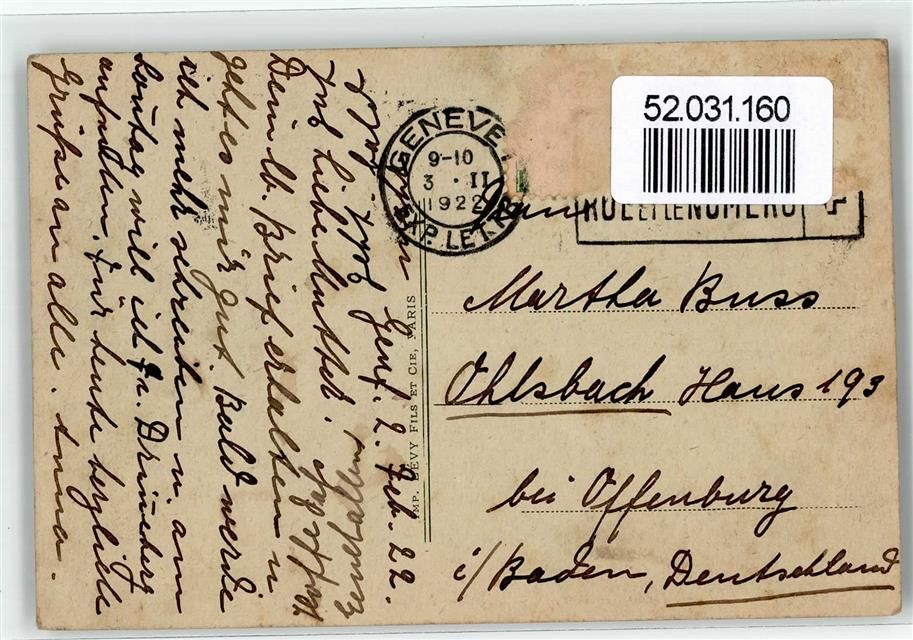 52.031.160
GENEVE 1
9-10
3 · II
1922
EXP. LET.
RUE ET LE NUMERO
Martha Buss
Ohlsbach Haus 193
bei Offenburg
i/Baden, Deutschland
IMP. LEVY FILS ET CIE, PARIS
Genf. 2. Feb. 22.
Liebe Mutter!
Dein lb. Brief erhalten u
geht es mir gut. Bald werde
ich mehr schreiben u. am
Sontag will ich Fr. Drüneberg
aufsuchen. Für heute herzliche
Grüsse an alle. Anna.